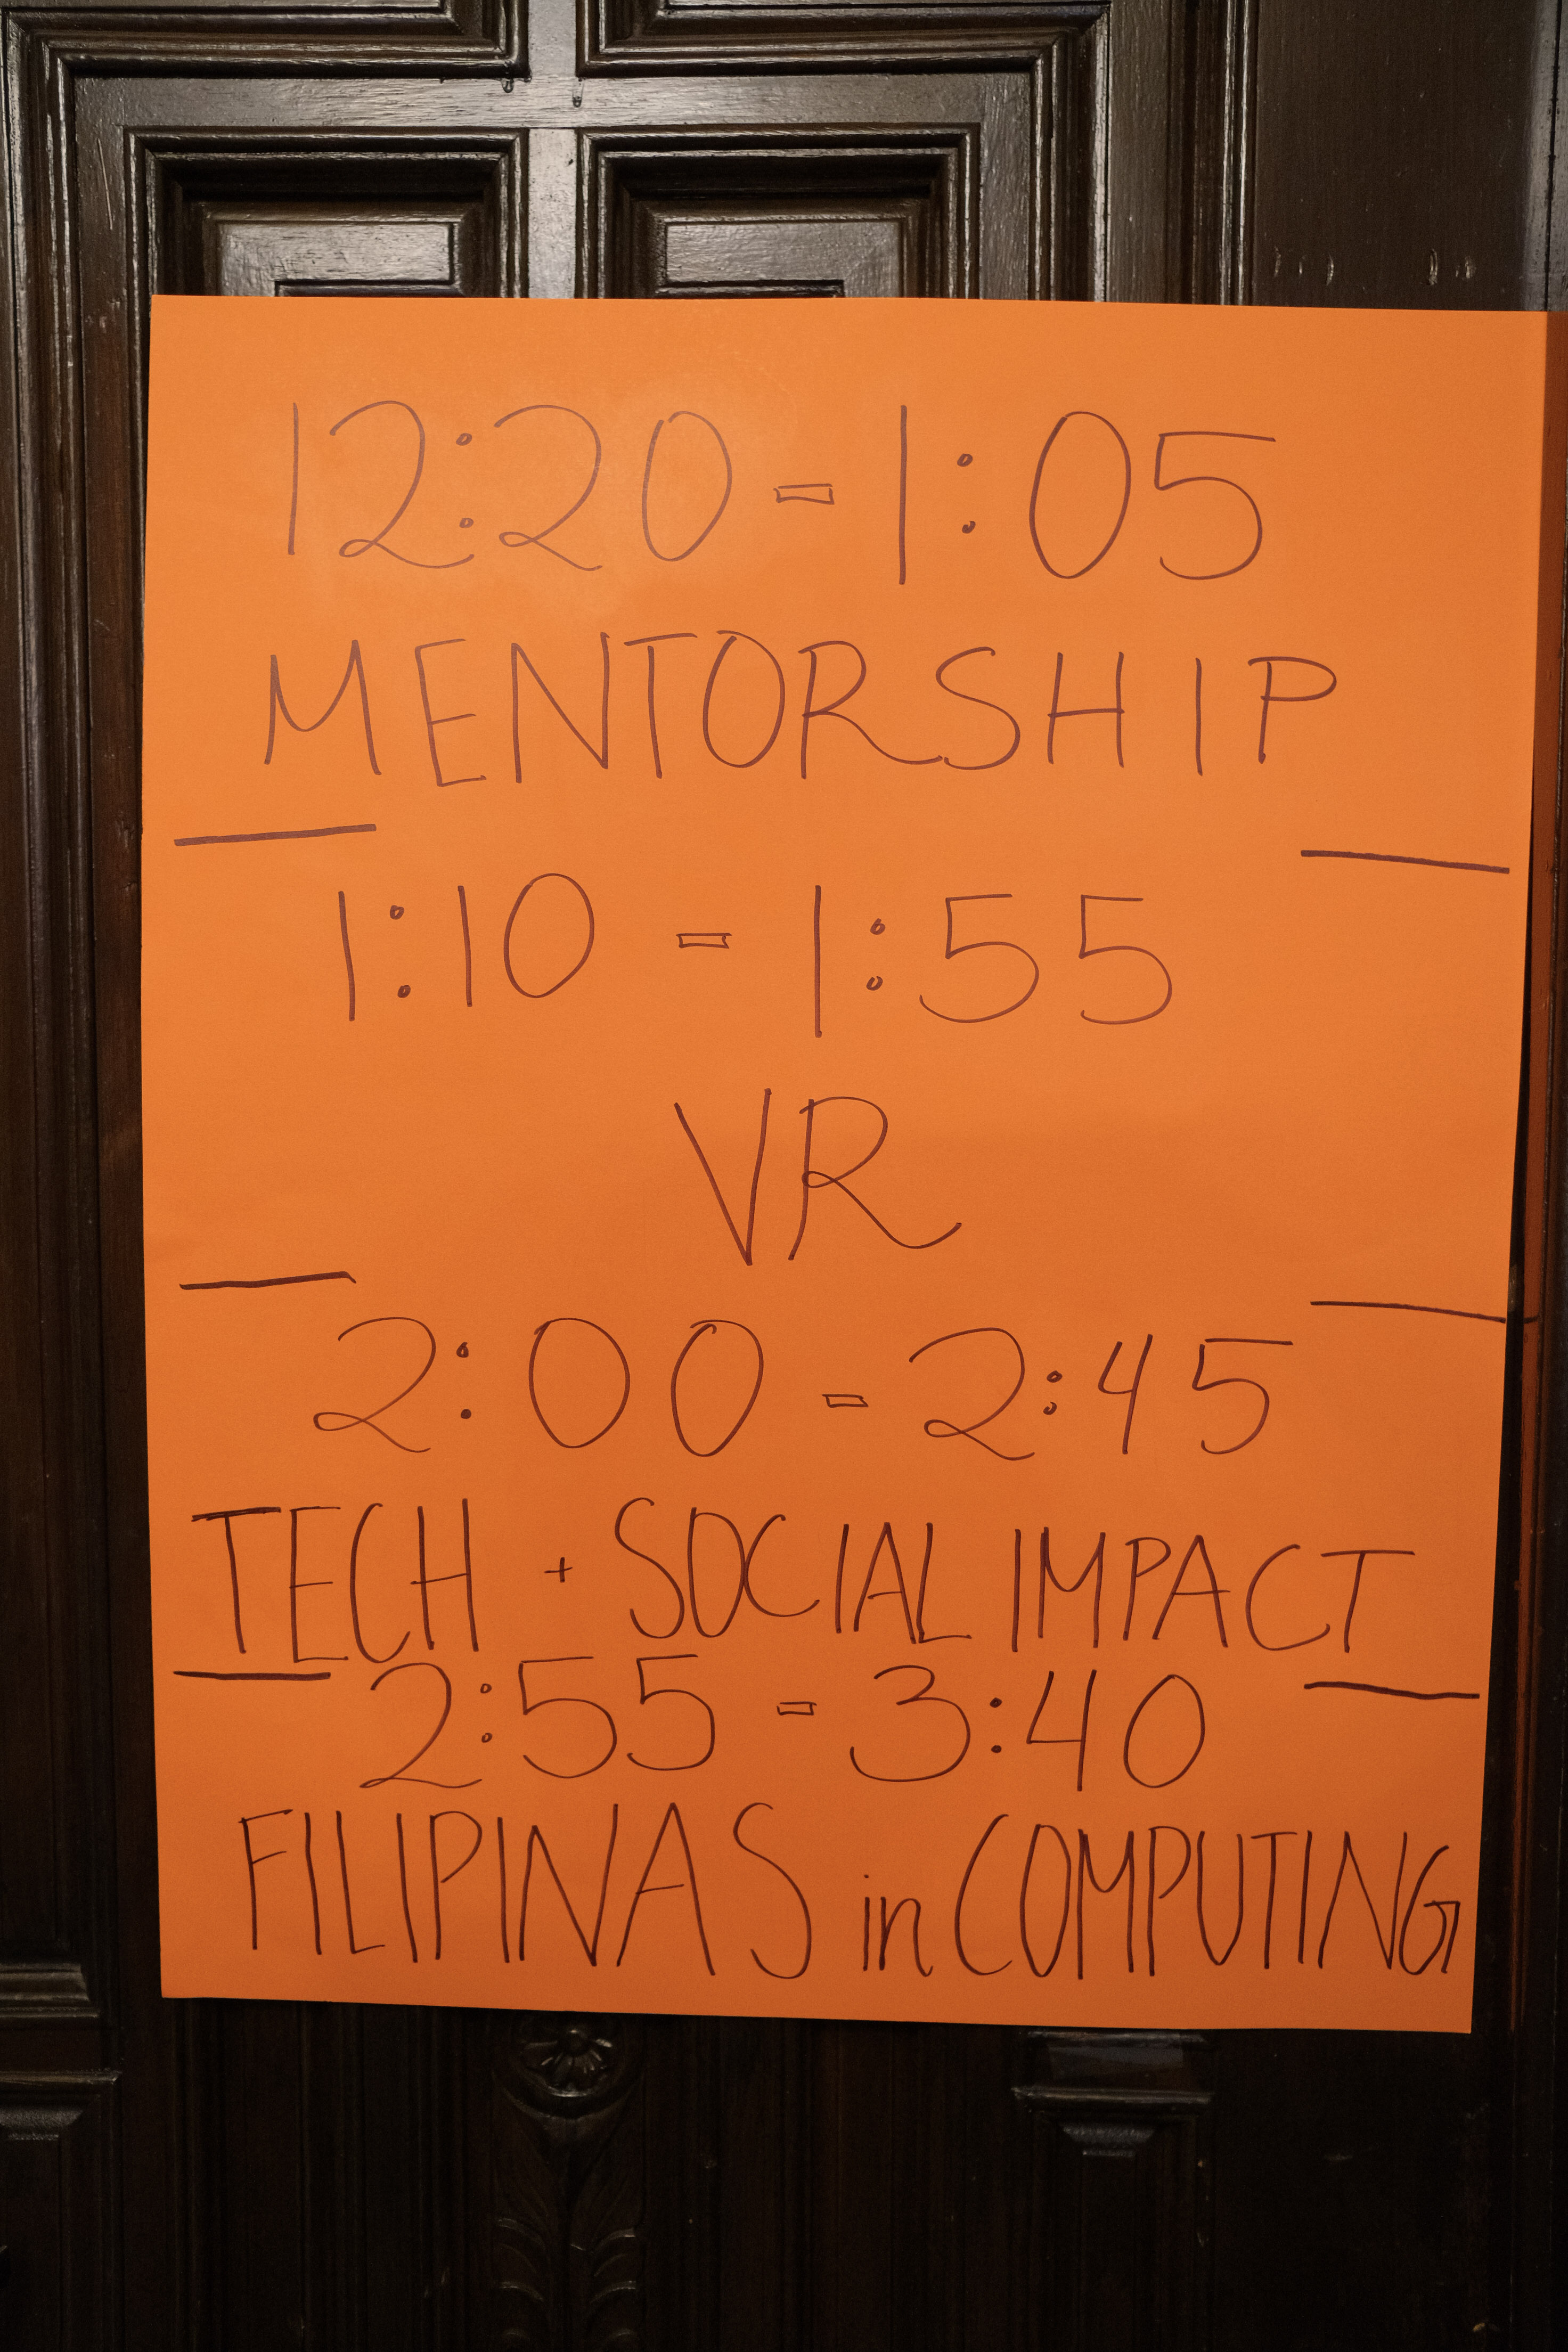 12:20 - 1:05
MENTORSHIP
1:10 - 1:55
VR
2:00 - 2:45
TECH + SOCIAL IMPACT
2:55 - 3:40
FILIPINAS in COMPUTING